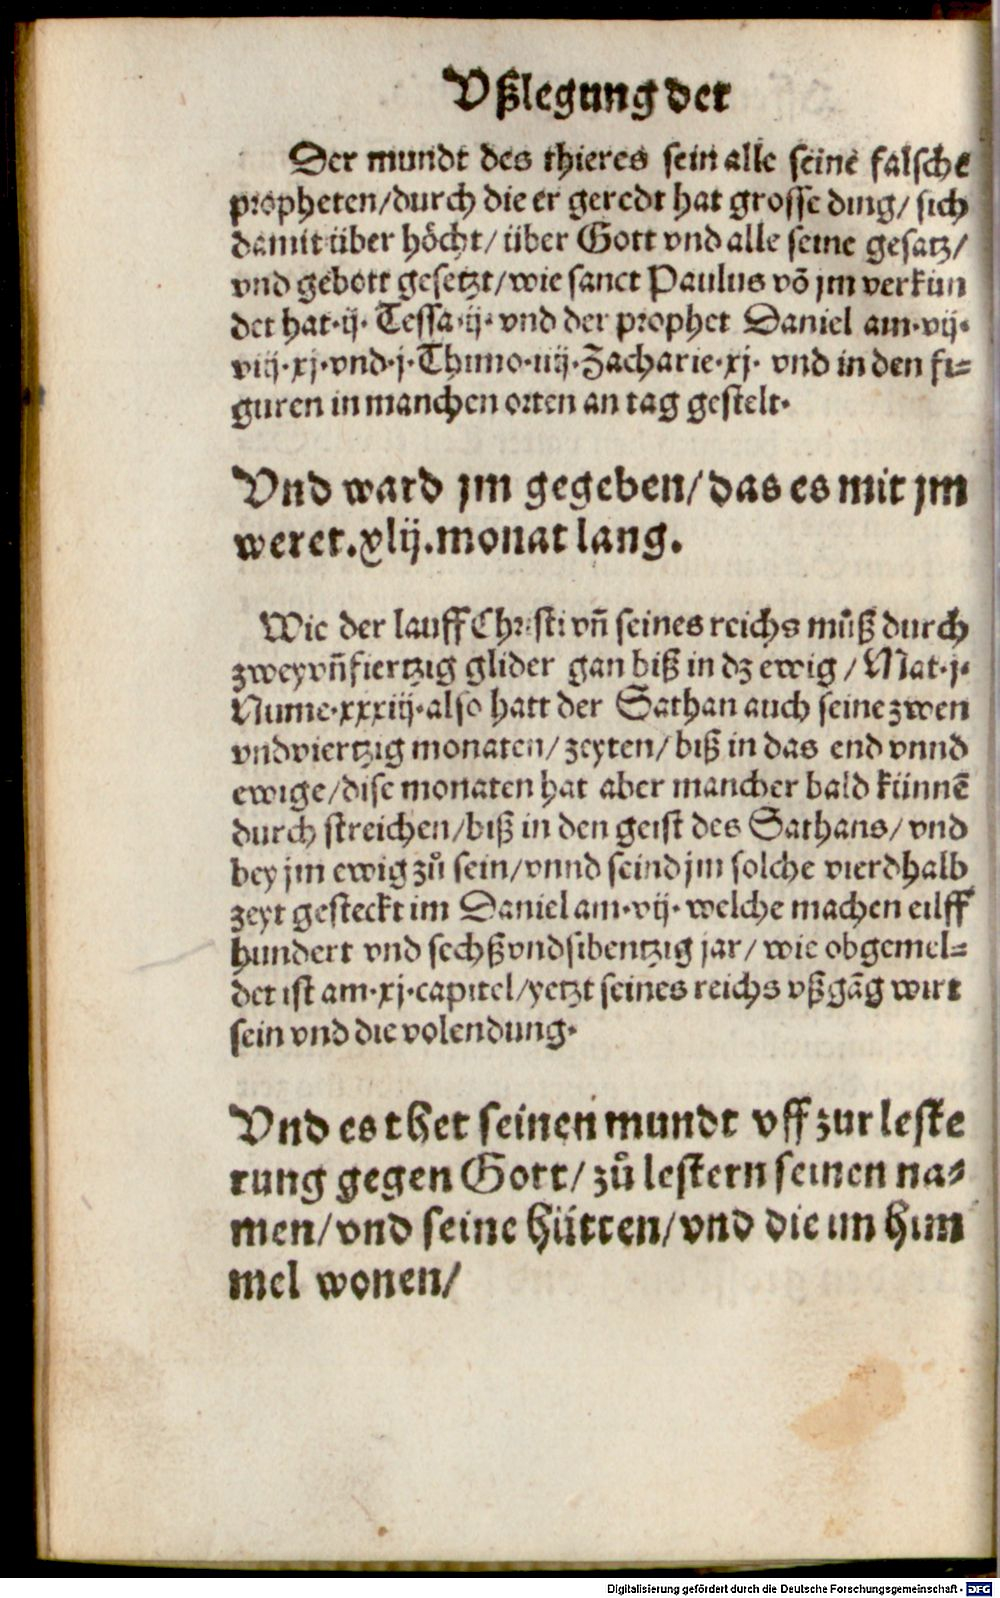 Vßlegung der
Der mundt des thieres sein alle seine falsche
propheten/durch die er geredt hat grosse ding/ sich
damit über höcht/ über Gott vnd alle seine gesatz/
vnd gebott gesetzt/wie sanct Paulus võ jm verkün
det hat·ij· Tessa·ij· vnd der prophet Daniel am·vij·
viij·xj·vnd·j·Thimo·iiij·Zacharie·xj· vnd in den fi=
guren in manchen orten an tag gestelt·
Vnd ward jm gegeben/das es mit jm
weret.xlij.monat lang.
Wie der lauff Christi vñ seines reichs můß durch
zweyvñfiertzig glider gan biß in dz ewig /Mat·j·
Nume·xxxiij·also hatt der Sathan auch seine zwen
vndviertzig monaten/zeyten/biß in das end vnnd
ewige/dise monaten hat aber mancher bald künnẽ
durch streichen/biß in den geist des Sathans/ vnd
bey jm ewig zů sein/vnnd seind jm solche vierdhalb
zeyt gesteckt im Daniel am·vij·welche machen eilff
hundert vnd sechßvndsibentzig jar/ wie obgemel=
det ist am·xj·capitel/yetzt seines reichs vßgãg wirt
sein vnd die volendung·
Vnd es thet seinen mundt vff zur leste
rung gegen Gott/zů lestern seinen na=
men/vnd seine hütten/vnd die im him
mel wonen/
Digitalisierung gefördert durch die Deutsche Forschungsgemeinschaft - DFG